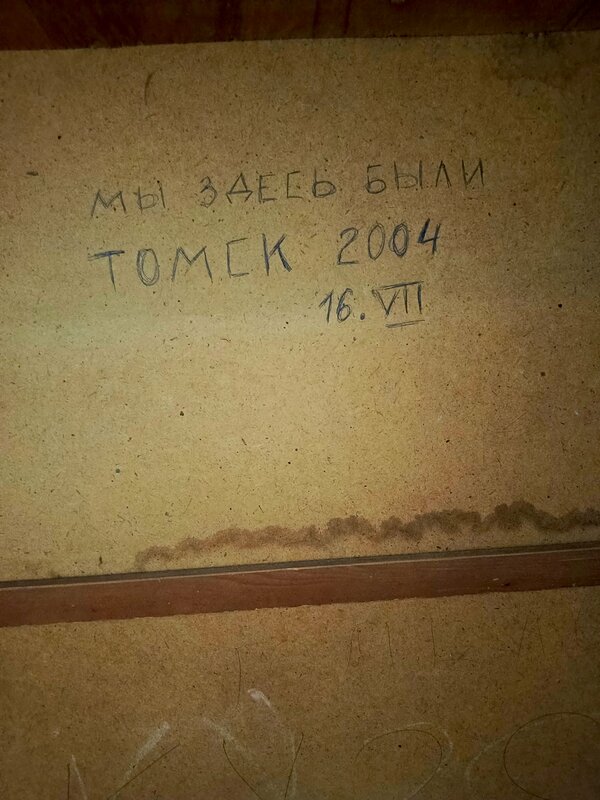 МЫ ЗДЕСЬ БЫЛИ
ТОМСК 2004
16. VII